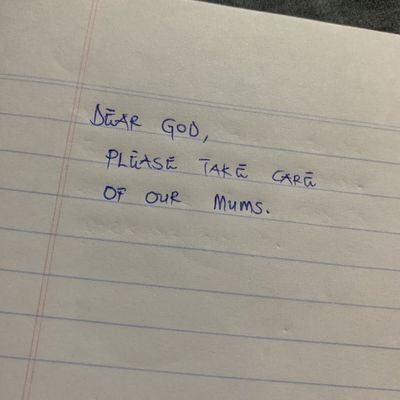 DEAR GOD,
PLEASE TAKE CARE
OF OUR MUMS.